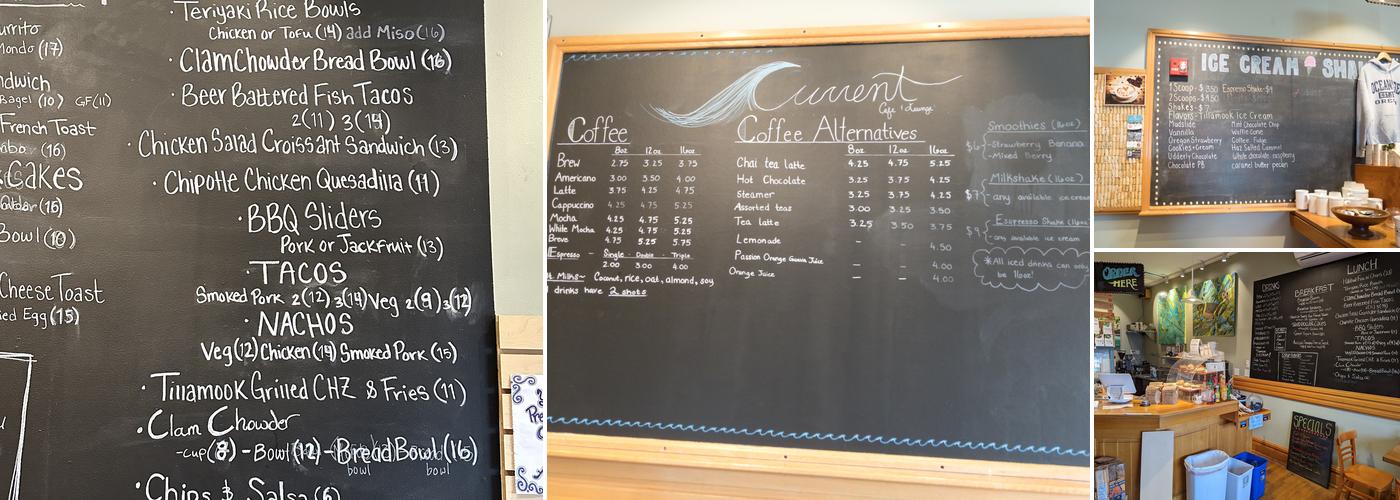 urrito
(17)
ndwich
Bagel (10) GF(11)
French Toast
(16)
Cakes
(16)
Bowl (10)
Cheese Toast
ied Egg (15)
· Teriyaki Rice Bowls
Chicken or Tofu (14) add Miso (16)
· Clam Chowder Bread Bowl (16)
· Beer Battered Fish Tacos
2 (11) 3 (14)
· Chicken Salad Croissant Sandwich (13)
· Chipotle Chicken Quesadilla (11)
· BBQ Sliders
Pork or Jackfruit (13)
· TACOS
Smoked Pork 2(12) 3(14) Veg 2(9) 3(12)
· NACHOS
Veg (12) Chicken (14) Smoked Pork (15)
· Tillamook Grilled CHZ & Fries (11)
· Clam Chowder
-cup (8) - Bowl (12) - Bread Bowl (16)
bowl bowl
· Chips & Salsa (6)
Current
Cafe & Lounge
Coffee
8oz 12oz 16oz
Brew 2.75 3.25 3.75
Americano 3.00 3.50 4.00
Latte 3.75 4.25 4.75
Cappuccino 4.25 4.75 5.25
Mocha 4.25 4.75 5.25
White Mocha 4.25 4.75 5.25
Breve 4.75 5.25 5.75
Espresso - Single - Double - Triple
2.00 3.00 4.00
Milks~ Coconut, rice, oat, almond, soy
drinks have 2 shots
Coffee Alternatives
8oz 12oz 16oz
Chai tea latte 4.25 4.75 5.25
Hot Chocolate 3.25 3.75 4.25
Steamer 3.25 3.75 4.25
Assorted teas 3.00 3.25 3.50
Tea latte 3.25 3.50 3.75
Lemonade - - 4.50
Passion Orange Guava Juice - - 4.00
Orange Juice - - 4.00
Smoothies (16oz)
$6 -Strawberry Banana
-Mixed Berry
Milkshake (16oz)
$7 - any available ice cream
Espresso Shake (16oz)
$9 - any available ice cream
*All iced drinks can only
be 16oz!
ICE CREAM SHA
1 Scoop - $3.50 Espresso Shake - $9
2 Scoops - $4.50
Shakes - $7
Flavors - Tillamook Ice Cream
Mudslide Mint Chocolate Chip
Vannilla Waffle Cone
Oregon Strawberry Coffee Fudge
Cookies+Cream Haz Salted Caramel
Udderly Chocolate White chocolate raspberry
Chocolate PB caramel butter pecan
OCEAN
ORDER
HERE
DRINKS
BREAKFAST
LUNCH
SPECIALS